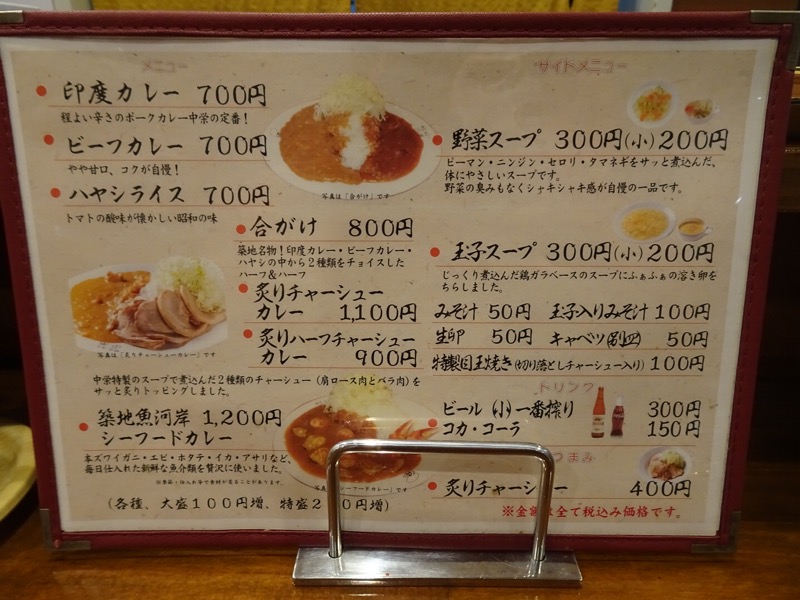 メニュー
印度カレー 700円
程よい辛さのポークカレー中栄の定番！
ビーフカレー 700円
やや甘口、コクが自慢！
ハヤシライス 700円
トマトの酸味が懐かしい昭和の味
写真は「合がけ」です
合がけ 800円
築地名物！印度カレー・ビーフカレー・
ハヤシの中から２種類をチョイスした
ハーフ＆ハーフ
炙りチャーシュー
カレー 1,100円
炙りハーフチャーシュー
カレー 900円
写真は「炙りチャーシューカレー」です
中栄特製のスープで煮込んだ２種類のチャーシュー（肩ロース肉とバラ肉）を
サッと炙りトッピングしました。
築地魚河岸 1,200円
シーフードカレー
本ズワイガニ・エビ・ホタテ・イカ・アサリなど、
毎日仕入れた新鮮な魚介類を贅沢に使いました。
※季節・仕入れ等で食材が異なることがあります。
シーフードカレー」です
（各種、大盛１００円増、特盛２ ０円増）
サイドメニュー
野菜スープ 300円(小)200円
ピーマン・ニンジン・セロリ・タマネギをサッと煮込んだ、
体にやさしいスープです。
野菜の臭みもなくシャキシャキ感が自慢の一品です。
玉子スープ 300円(小)200円
じっくり煮込んだ鶏ガラベースのスープにふぁふぁの溶き卵を
ちらしました。
みそ汁 50円 玉子入りみそ汁 100円
生卵 50円 キャベツ(別皿) 50円
特製目玉焼き(切り落としチャーシュー入り) 100円
ドリンク
ビール (小) 一番搾り 300円
コカ・コーラ 150円
つまみ
炙りチャーシュー 400円
※金額は全て税込み価格です。